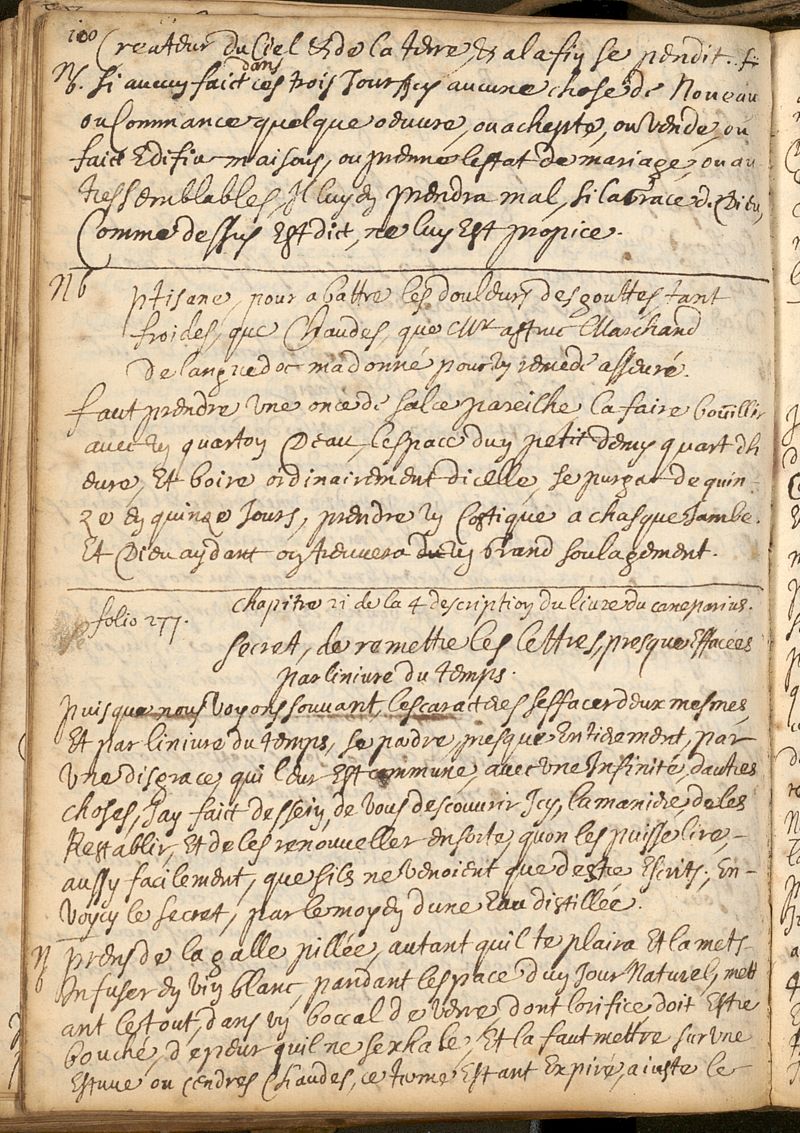 100
Createur du Ciel & de la terre, & a la fin se pendit.
Nb. Si aucun faict dans ces trois Jours Icy aucune chose de Nouveau
ou Commance quelque oeuvre, ou achepte, ou vende, ou
faict Edifier maisons, ou prenne lestat de mariage, ou au
tres semblables, Il luy en prendra mal, si la Grace de Dieu,
Comme dessus Est dict, ne luy Est propice.
Nb
ptisane, pour abattre les douleurs des gouttes tant
froides, que Chaudes, que Mr astruc Marchand
de languedoc ma donné pour un remede asseuré.
faut prendre une once de salce pareilhe la faire bouillir
avec un quarton Deau, lespace dun petit demy quart dh
eure, Et boire ordinairement dicelle, se purgat de quin-
ze en quinze Jours, prendre un Costique a chasque Jambe.
Et Dieu aydant on treuvera un Grand soulagement.
chapitre 21 de la 4 description du livre du caneparius.
folio 277.
secret, de remettre les lettres, presque Effacees
par liniure du temps.
puisque nous voyons souvant, les caracteres seffacer deux mesmes,
Et par liniure du temps, se perdre, presque Entierement, par
une disgrace, qui leur Est commune, avec une Infinité, dautres
choses, Jay faict dessein, de vous descouvrir Icy, la maniere, de les
Restablir, Et de les renouveller ensorte, quon les puisse lire,-
aussy facilement, que sils ne venoient que destre Escrits; En-
voycy le secret, par le moyen dune Eau distillée.
Nb
prens de la galle pillée, autant quil te plaira Et la mets-
Infuser en vin blanc, pandant lespace dun Jour Naturel, mett
ant le tout, dans un boccal de verre dont lorifice doit Estre
bouché, de peur quil ne sexhale, Et la faut mettre sur une
Estuve ou cendres Chaudes, ce terme Estant Expiré, aiuste le